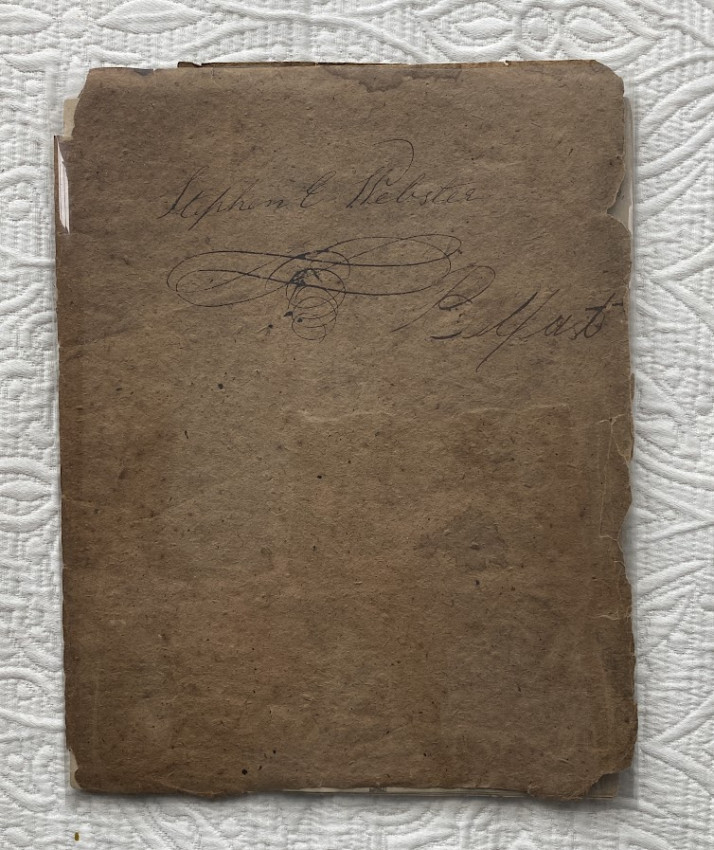 Stephen C Webster
Belfast